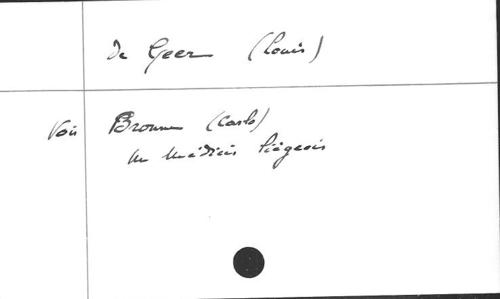 De Geer (Louis)
Voir Bronne (Carlo)
un médicis liégeois